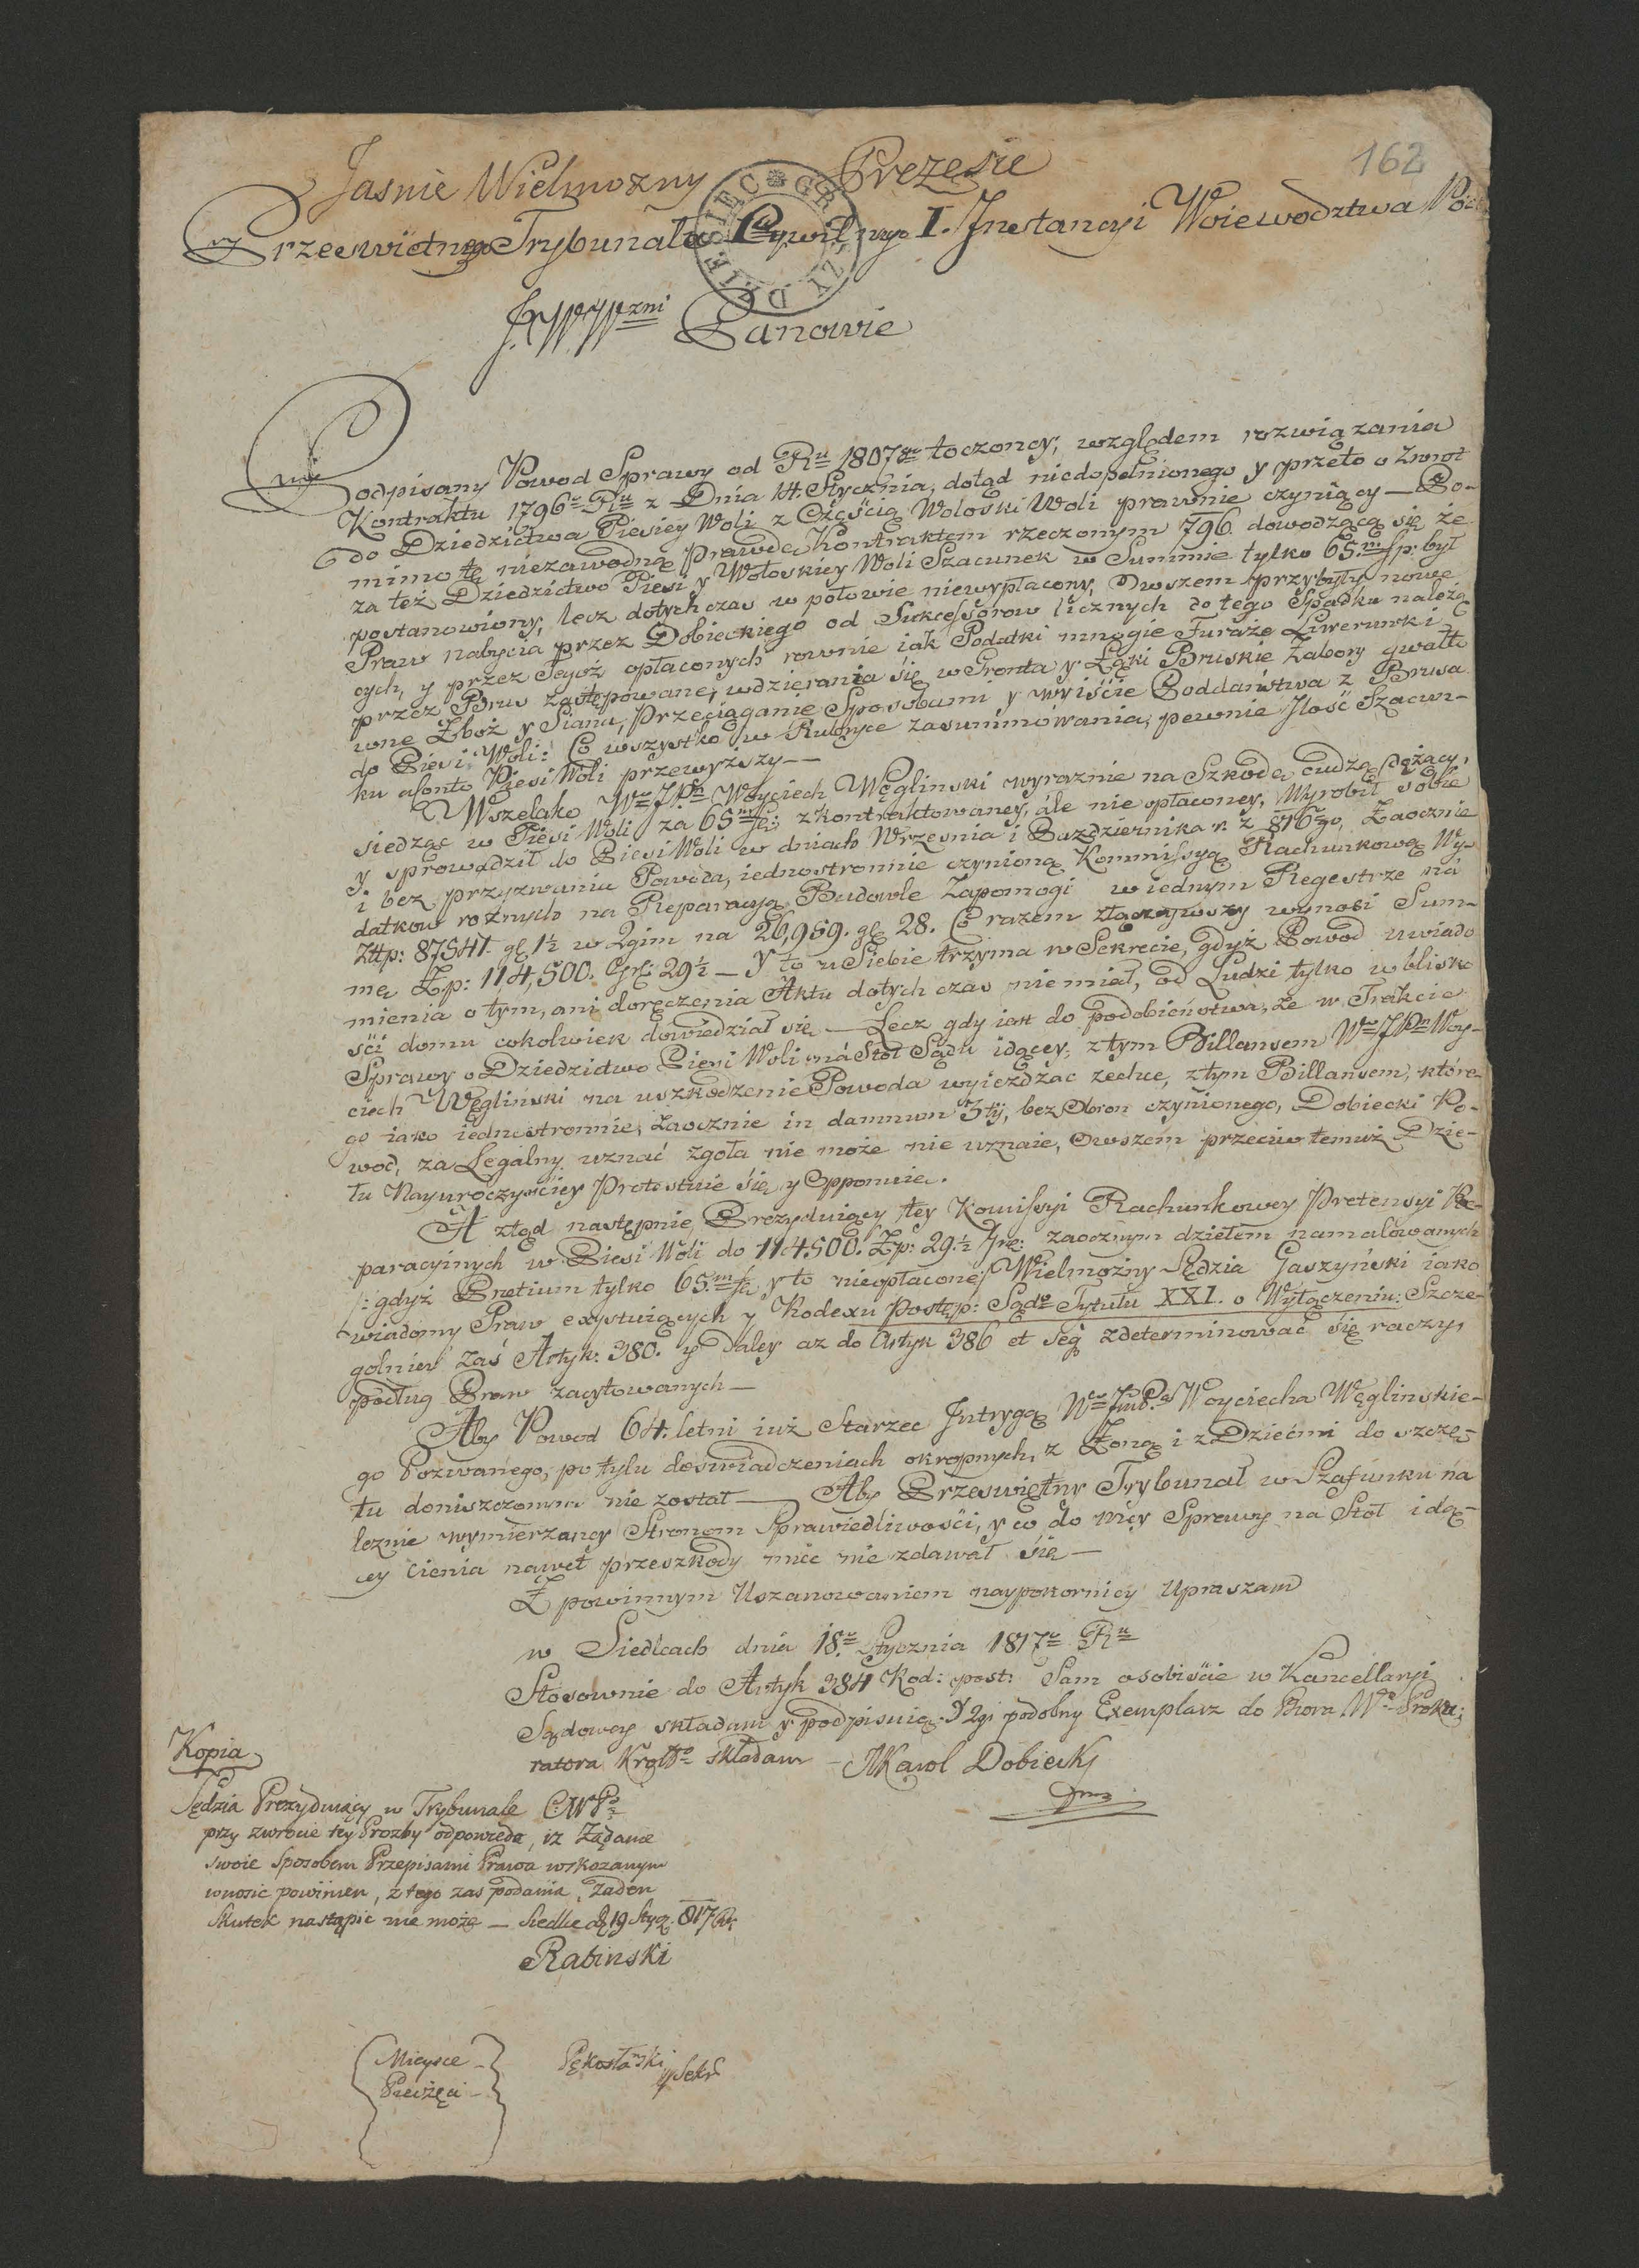 162
Jasnie Wielmozny Prezesie
Przeswiętnego Trybunału Cywilnego I. Jnstancyi Woiewodztwa
J. W. Wzni Panowie
Podpisany Powod Sprawy od Ru 1807go toczoney, względem rozwiązania
Kontraktu 1796o Ru z Dnia 14. Stycznia, dotąd niedopełnionego y przeto o Zwrot
do Dziedzictwa Piesiey Woli z Częścią Wołoski Woli prawnie czyniący — Po-
mimo tę niezawodną prawdę Kontraktem rzeczonym 796 dowodzącą się że
za też Dziedzictwo Piesi y Wołoskiey Woli Szacunek w Summie tylko 65.m fp: był
postanowiony, lecz dotychczas w połowie niewypłacony, Owszem przybyły nowe
Praw nabycia przez Dobieckiego od Sukcessorow licznych do tego Spadku należą-
cych, y przez Tegoż opłaconych rownie iak Podatki mnogie Furaże Liwerunki
przez Brus zastępowane, wdzierania się w Gronta y Łąki Bruskie Zabory gwałto
wne Zboż y Siana, Przeciąganie Sposobami y wyiście Poddaństwa z Brusa
do Piesi Woli: Co wszystko w Rubryce zasummowania, pewnie Jlość Szacun-
ku afonto Piesi Woli przewyższy —
Wszelako Wny JPn Woyciech Węglinski wyraznie na Szkodę cudzą dążący,
siedząc w Piesi Woli za 65m fp: zkontraktowaney, ale nie opłaconey, Wyrobił sobie
y sprowadził do Piesi Woli w dniach Wrzesnia i Pazdziernika r. z 816go, Zaocznie
i bez przyzwania Powoda, iednostronnie czynioną Kommissyą Rachunkową Wy-
datkow roznych na Reparacyą Budowle Zapomogi w iednym Regestrze na
Złłp: 87541. gl 1½ w 2gim na 26,959. gl 28. Co razem złączywszy wynosi Sum-
mę Zp: 114,500. Gr: 29½ — Y to u Siebie trzyma w Sekrecie, gdyż Powod uwiado
mienia o tym, ani doręczenia Aktu dotychczas nie miał, od Ludzi tylko w blisko
ści domu cokolwiek dowiedział się — Lecz gdy iest do podobieństwa, że w Trakcie
Sprawy o Dziedzictwo Piesi Woli na Stoł Sądu idącey, z tym Billansem Wny JPn Woy-
ciech Węgliński na uszkodzenie Powoda wyieżdżac zechce, z tym Billansem, które-
go iako iednostronnie, Zaocznie in damnum 3tij, bez Obron czynionego, Dobiecki Po-
wod, za Legalny uznać zgoła nie może nie uznaie, Owszem przeciw temuż Dzie-
łu Nayuroczyściey Protestuie się y Opponuie.
A ztąd następnie, Prezyduiący tey Komissyi Rachunkowey Pretensyi Re-
paracyinych w Piesi Woli do 114.500. Zp: 29.½ gr: zaocznym dziełem namalowanych
/: gdyż Pretium tylko 65.m fp y to nieopłacone/ Wielmożny Sędzia Gaszyński iako
wiadomy Praw exystuiących y Kodexu Postęp: Sądo Tytułu XXI. o Wyłączeniu: Szcze-
golniey zaś Artyk: 380. y Daley az do Artyk 386 et seq zdeterminować się raczy,
podług Praw zacytowanych —
Aby Powod 64. letni iuż Starzec Jntrygą Wo Jmć Pa Woyciecha Węglinskie-
go Pozwanego, po tylu doswiadczeniach okropnych, z Żoną i z Dziećmi do szczę-
tu doniszczonym nie został — Aby Przeswiętny Trybunał w Szafunku na
leznie wymierzaney Stronom Sprawiedliwości, y co do mey Sprawy na Stoł idą-
cy Cienia nawet przeszkody miec nie zdawał się —
Z powinnym Uszanowaniem naypokorniey Upraszam
w Siedlcach dnia 18.o Stycznia 1817o Ru
Stosownie do Artyk 384 Kod: post: Sam osobiście w Kancellaryi
Sądowey składam y podpisuię. Y 2gi podobny Exemplarz do Biora Wo Proku-
ratora Krolgo składam — Karol Dobiecki
Kopia
Sędzia Prezyduiący w Trybunale CWPo
przy zwrocie tey Prozby odpowieda, iz Ządanie
swoie Sposobem Przepisami Prawa wskazanym
wnosic powinien, z tego zas podania, Zaden
Skutek nastąpic nie może — Siedlce d. 19 Stycz. 817 R.
Rabinski
Mieysce
Pieczęci
Pękosławski
Sekr